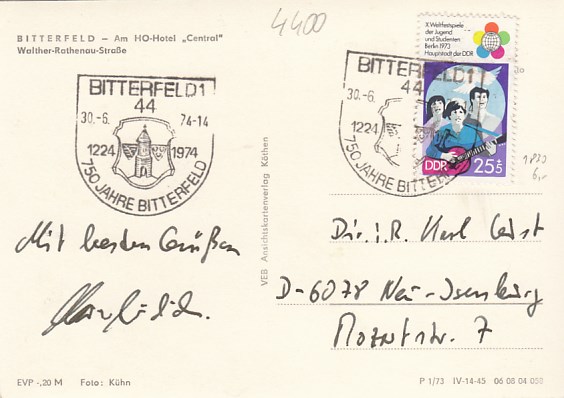 4400
BITTERFELD – Am HO-Hotel „Central"
Walther-Rathenau-Straße
X. Weltfestspiele
der Jugend
und Studenten
Berlin 1973
Hauptstadt der DDR
BITTERFELD 1
44
30.-6. 74-14
1224 1974
750 JAHRE BITTERFELD
BITTERFELD 1
44
30.-6.
1224
750 JAHRE BITTER
DDR 25+5
1830
6,-
VEB Ansichtskartenverlag Köthen
Mit besten Grüßen
Dir. i. R. Karl
D-6078 Neu-Isenburg
Mozartstr. 7
EVP -,20 M Foto: Kühn
P 1/73 IV-14-45 06 08 04 050